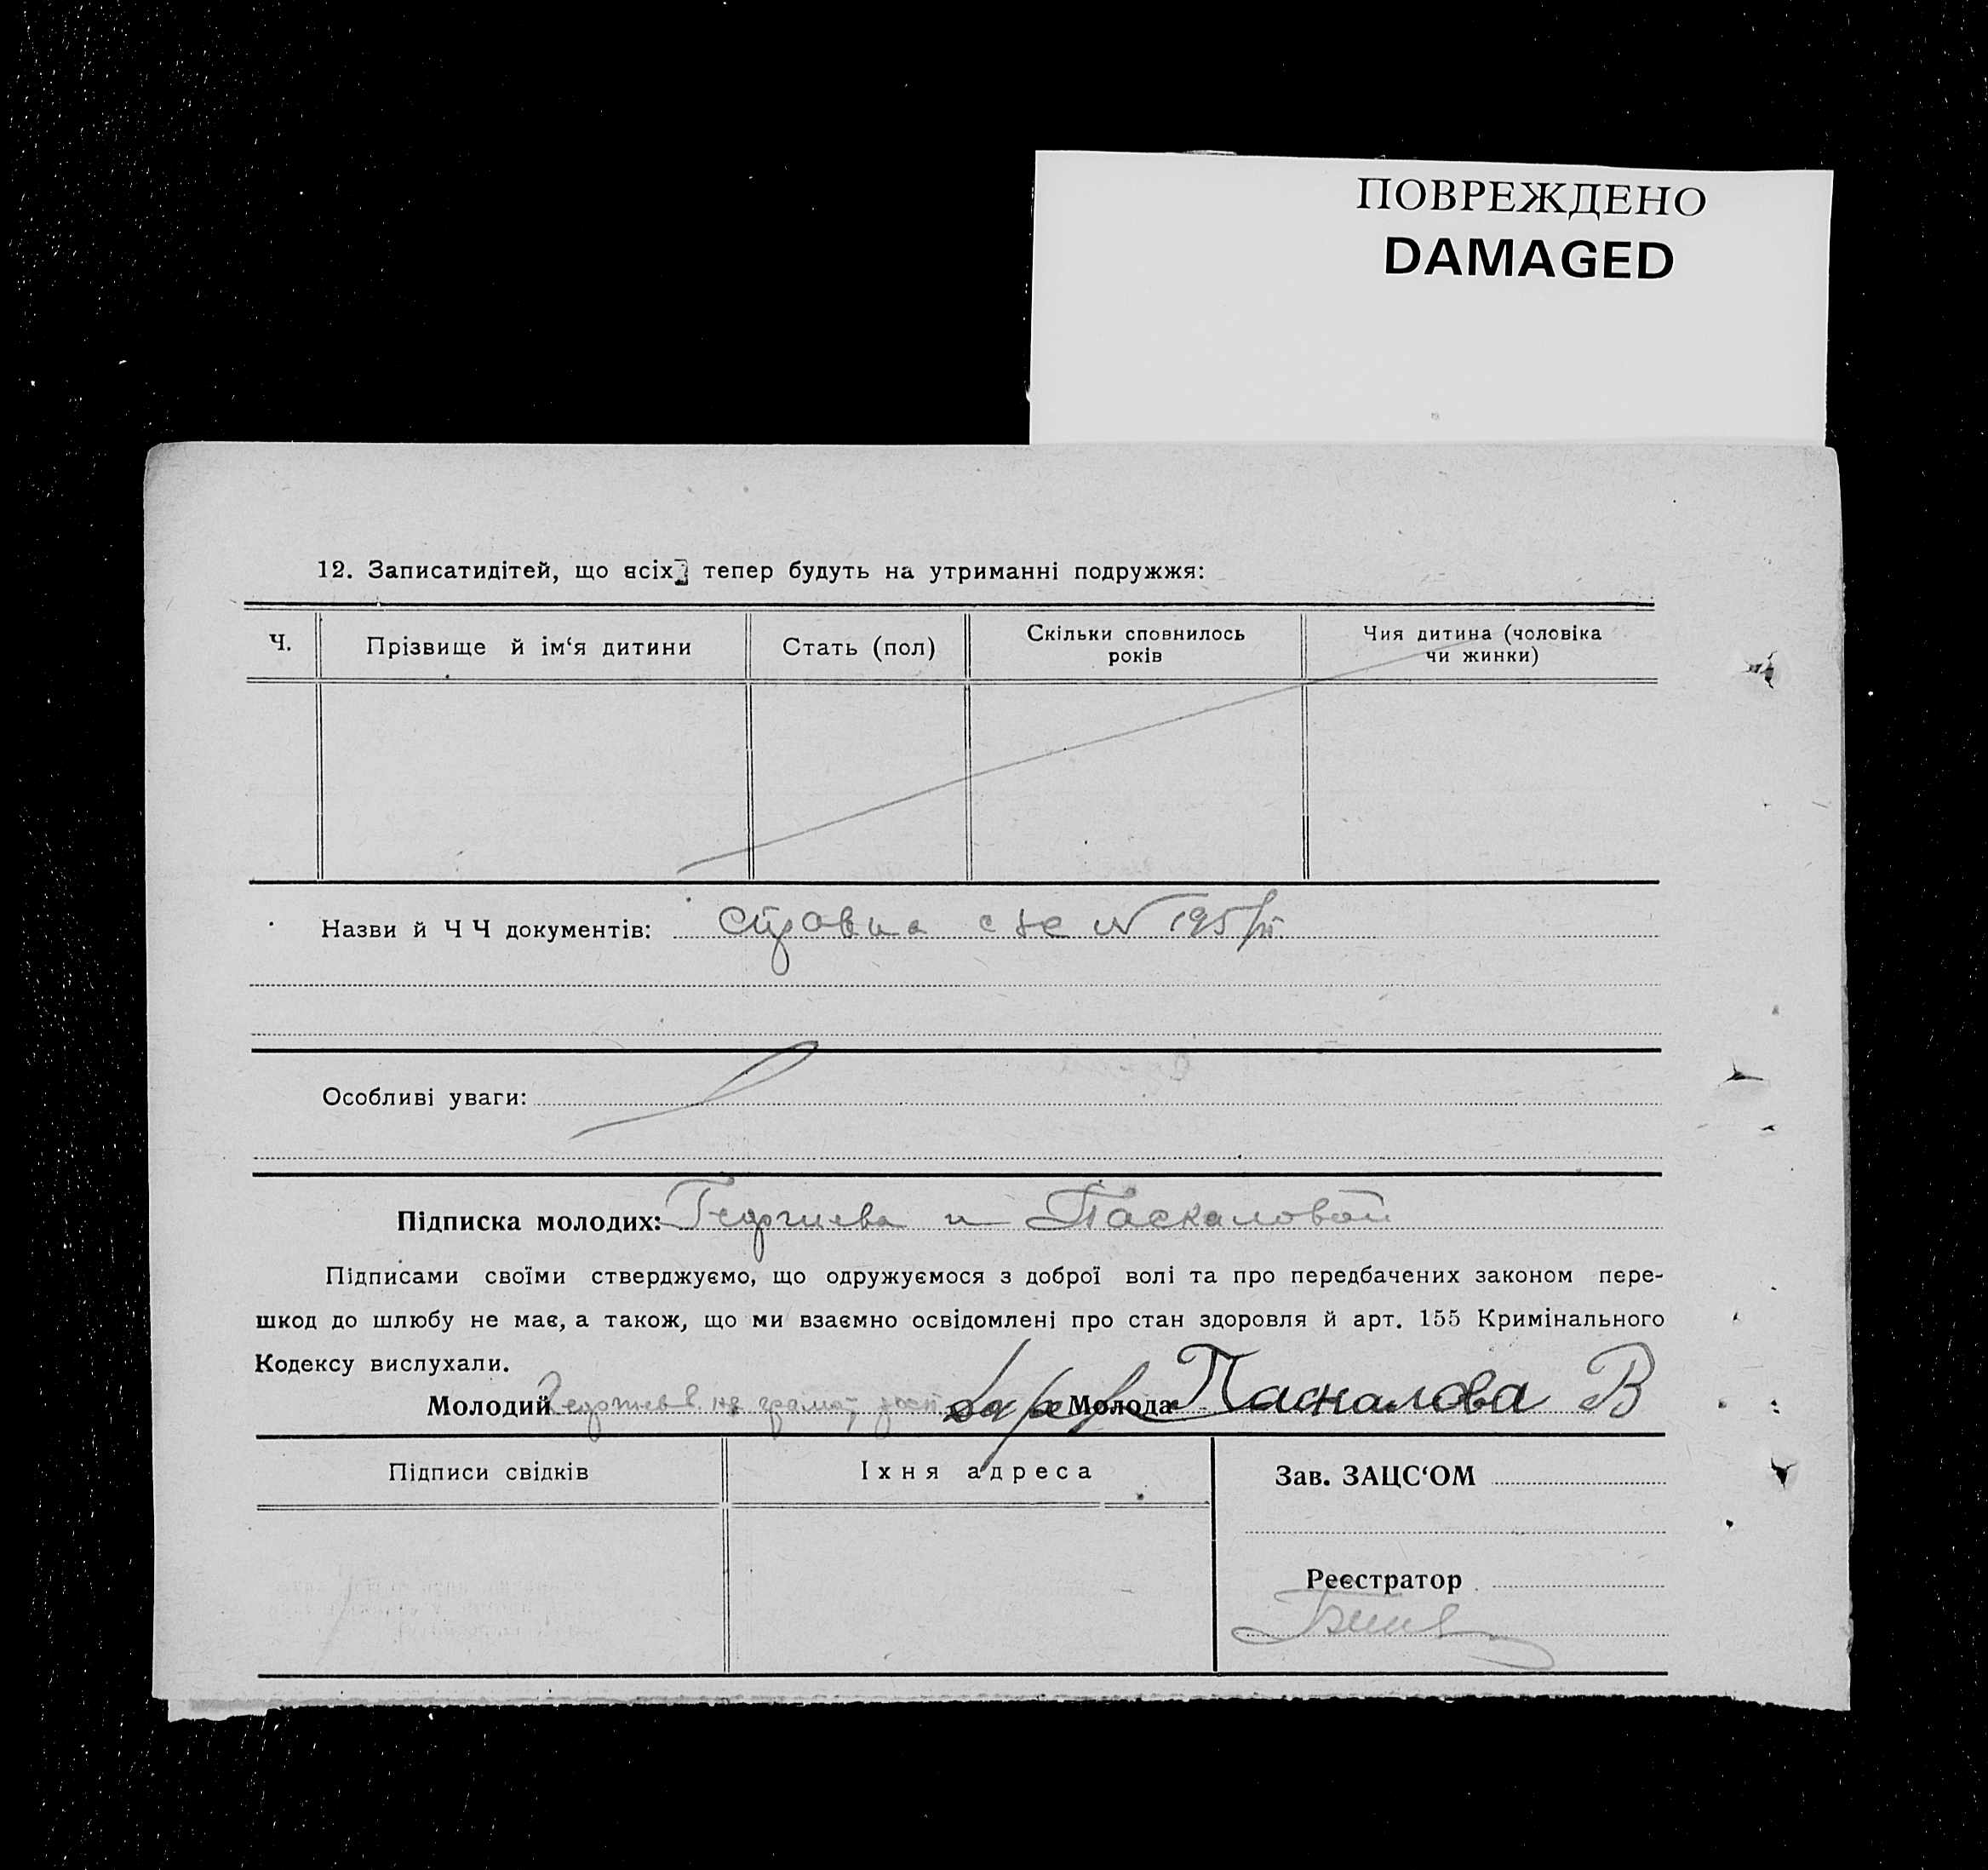 ПОВРЕЖДЕНО
DAMAGED
12. Записатидітей, що всіх тепер будуть на утриманні подружжя:
Ч. Прізвище й ім‘я дитини Стать (пол) Скільки сповнилось років Чия дитина (чоловіка чи жинки)
Назви й Ч Ч документів: Справка с/с № 195/
Особливі уваги:
Підписка молодих: Георгиева и Паскаловой
Підписами своїми стверджуємо, що одружуємося з доброї волі та про передбачених законом пере-
шкод до шлюбу не має, а також, що ми взаємно освідомлені про стан здоровля й арт. 155 Кримінального
Кодексу вислухали.
Молодий Георгиев не грамот Молода Паскалова В
Підписи свідків Їхня адреса Зав. ЗАЦС‘ОМ
Реєстратор